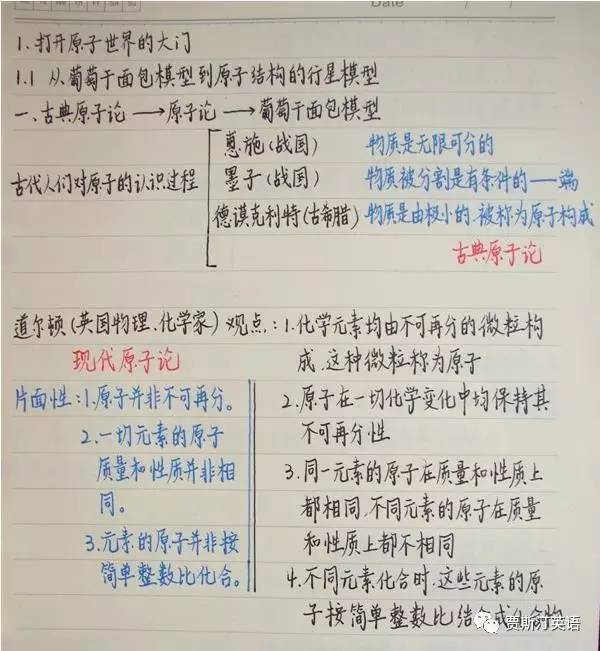 Date
1.打开原子世界的大门
1.1 从葡萄干面包模型到原子结构的行星模型
一.古典原子论→原子论→葡萄干面包模型
古代人们对原子的认识过程
惠施(战国) 物质是无限可分的
墨子(战国) 物质被分割是有条件的——端
德谟克利特(古希腊) 物质是由极小的.被称为原子构成
古典原子论
道尔顿(英国物理.化学家)观点:1.化学元素均由不可再分的微粒构
成.这种微粒称为原子
现代原子论
片面性:1.原子并非不可再分。
2.一切元素的原子
质量和性质并非相
同。
3.元素的原子并非按
简单整数比化合。
2.原子在一切化学变化中均保持其
不可再分性
3.同一元素的原子在质量和性质上
都相同.不同元素的原子在质量
和性质上都不相同
4.不同元素化合时.这些元素的原
子按简单整数比结合成化合物
贾斯汀英语